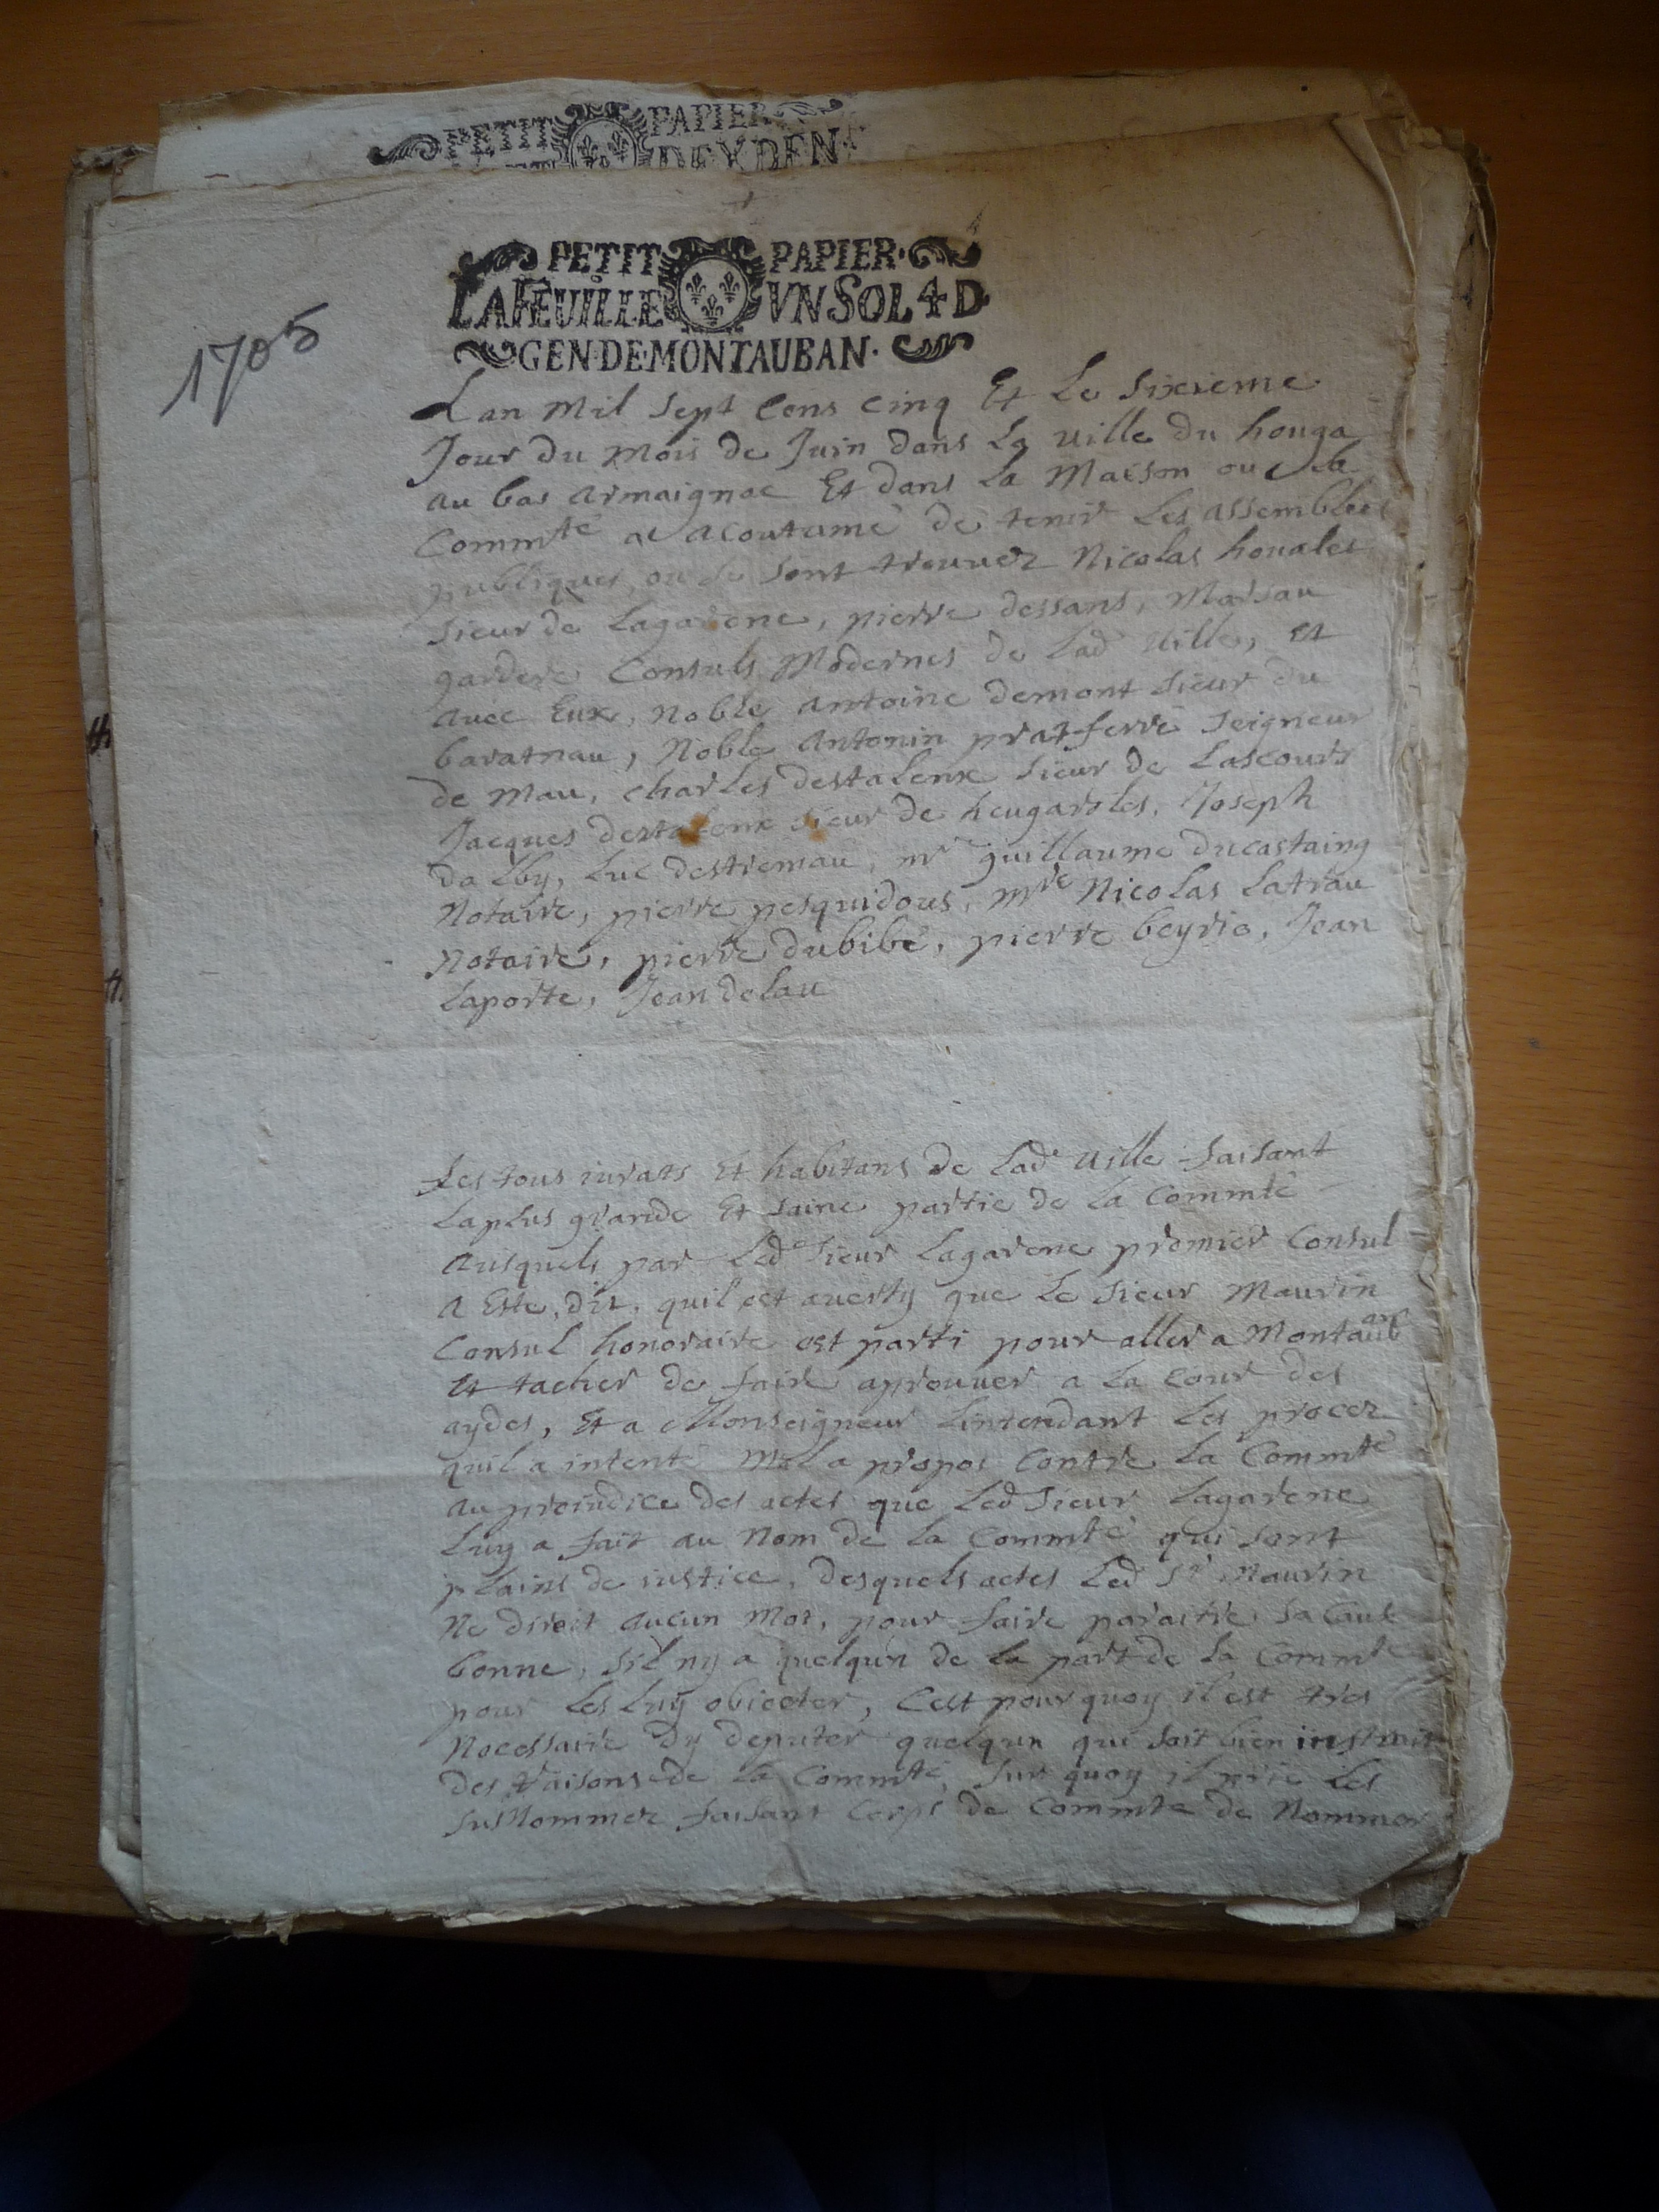 PETIT PAPIER
DEYDEN
PETIT PAPIER
LA FEUILLE VN SOL 4 D
GEN·DE·MONTAUBAN·
1705
Lan mil sept cens cinq Et le sixieme
Jour du mois de Juin dans la ville du houga
au bas armaignac Et dans la maison ou la
Commté a acoutumé de tenir les assemblées
publiques, ou se sont trouuez Nicolas houales
sieur de Lagarene, pierre dessans, Marsau
gardere Consuls modernes de lad ville, et
auec Eux, noble antoine demont sieur du
baratnau, Noble antonin pratferré seigneur
de mau, charles destalenx sieur de Lascours
Jacques destalenx sieur de heugaroles, Joseph
dalby, luc destremau, mr guillaume ducastaing
Notaire, pierre pesquidous, mre Nicolas Latrau
Notaire, pierre dubibé, pierre beyrie, Jean
Laporte, Jean delau
les tous iurats et habitans de lade ville faisant
la plus grande Et saine partie de la Commté
ausquels par led sieur Lagarene premier Consul
a Esté dit, quil est auerty que le sieur Maurin
Consul honoraire est parti pour aller a Montauban
et tacher de faire aprouuer a la Cour des
aydes, Et a Monseigneur Lintendant les procez
quil a intenté mal a propos Contre la Commté
au preiudice des actes que led sieur Lagarene
luy a fait au nom de la Commté qui sont
plains de iustice, desquels actes led Sr Maurin
Ne diroit aucun mot, pour faire paraitre sa Cause
bonne, sil ny a quelqun de la part de la Commté
pour les luy obiecter, Cest pourquoy il est tres
Necessaire dy deputer quelqun qui soit bien instruit
des raisons de la Commté, sur quoy il prie les
susnommez faisant Corps de Commté de Nommer